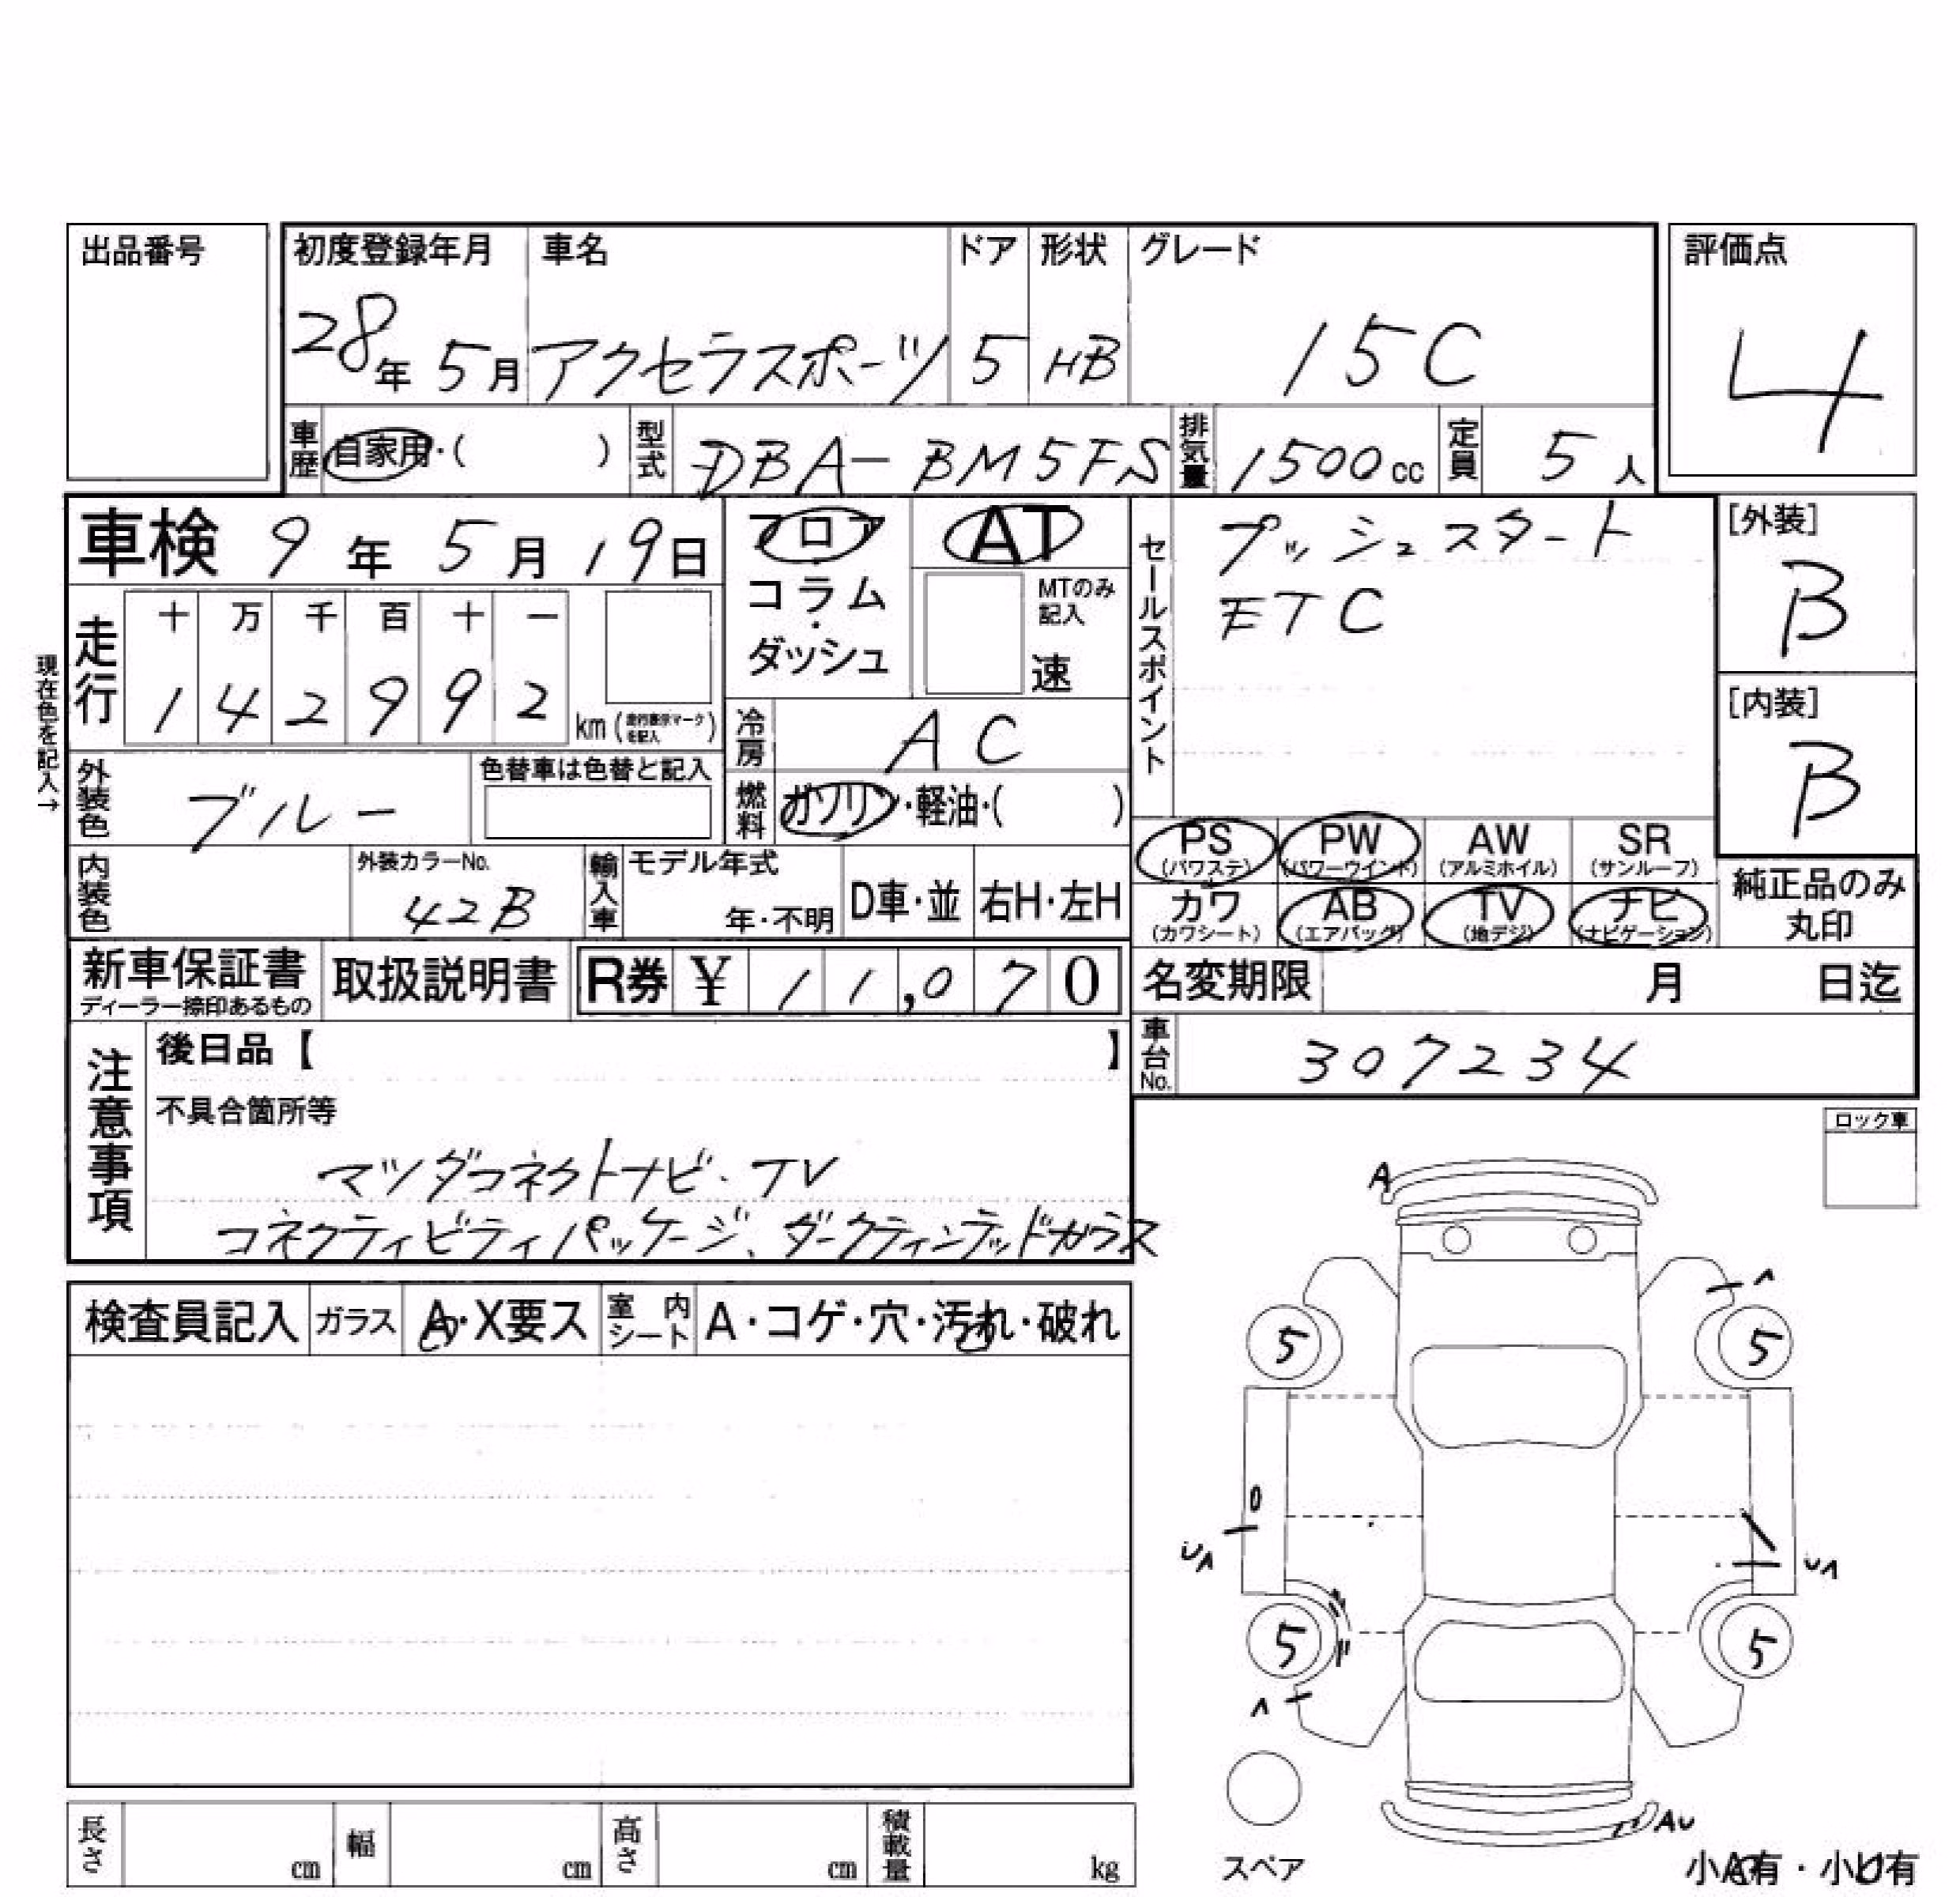 出品番号
初度登録年月 車名 ドア 形状 グレード 評価点
28年 5月 アクセラスポーツ 5 HB 15C 4
車歴 自家用・( ) 型式 DBA-BM5FS 排気量 1500cc 定員 5人
車検 9年 5月 19日 フロア・コラム・ダッシュ AT
MTのみ記入 速
セールスポイント プッシュスタート
ETC
[外装] B
[内装] B
現在色を記入→
走行 十 万 千 百 十 一
1 4 2 9 9 2 km (走行表示マークを記入)
冷房 AC
外装色 ブルー 色替車は色替と記入 燃料 ガソリン・軽油・( )
PS (パワステ) PW (パワーウインド) AW (アルミホイル) SR (サンルーフ)
内装色 外装カラーNo. 42B 輸入車 モデル年式 年・不明 D車・並 右H・左H
カワ (カワシート) AB (エアバッグ) TV (地デジ) ナビ (ナビゲーション) 純正品のみ丸印
新車保証書 ディーラー捺印あるもの 取扱説明書 R券 ¥ 11,070 名変期限 月 日迄
車台No. 307234
注意事項 後日品【 】
不具合箇所等
マツダコネクトナビ・TV
コネクティビティパッケージ、ダークティンテッドガラス
ロック車
検査員記入 ガラス A・X要ス 室内シート A・コゲ・穴・汚れ・破れ
A
^
5 5
0
UA UA
5 5
^
AU
スペア
小A有・小U有
長さ cm 幅 cm 高さ cm 積載量 kg